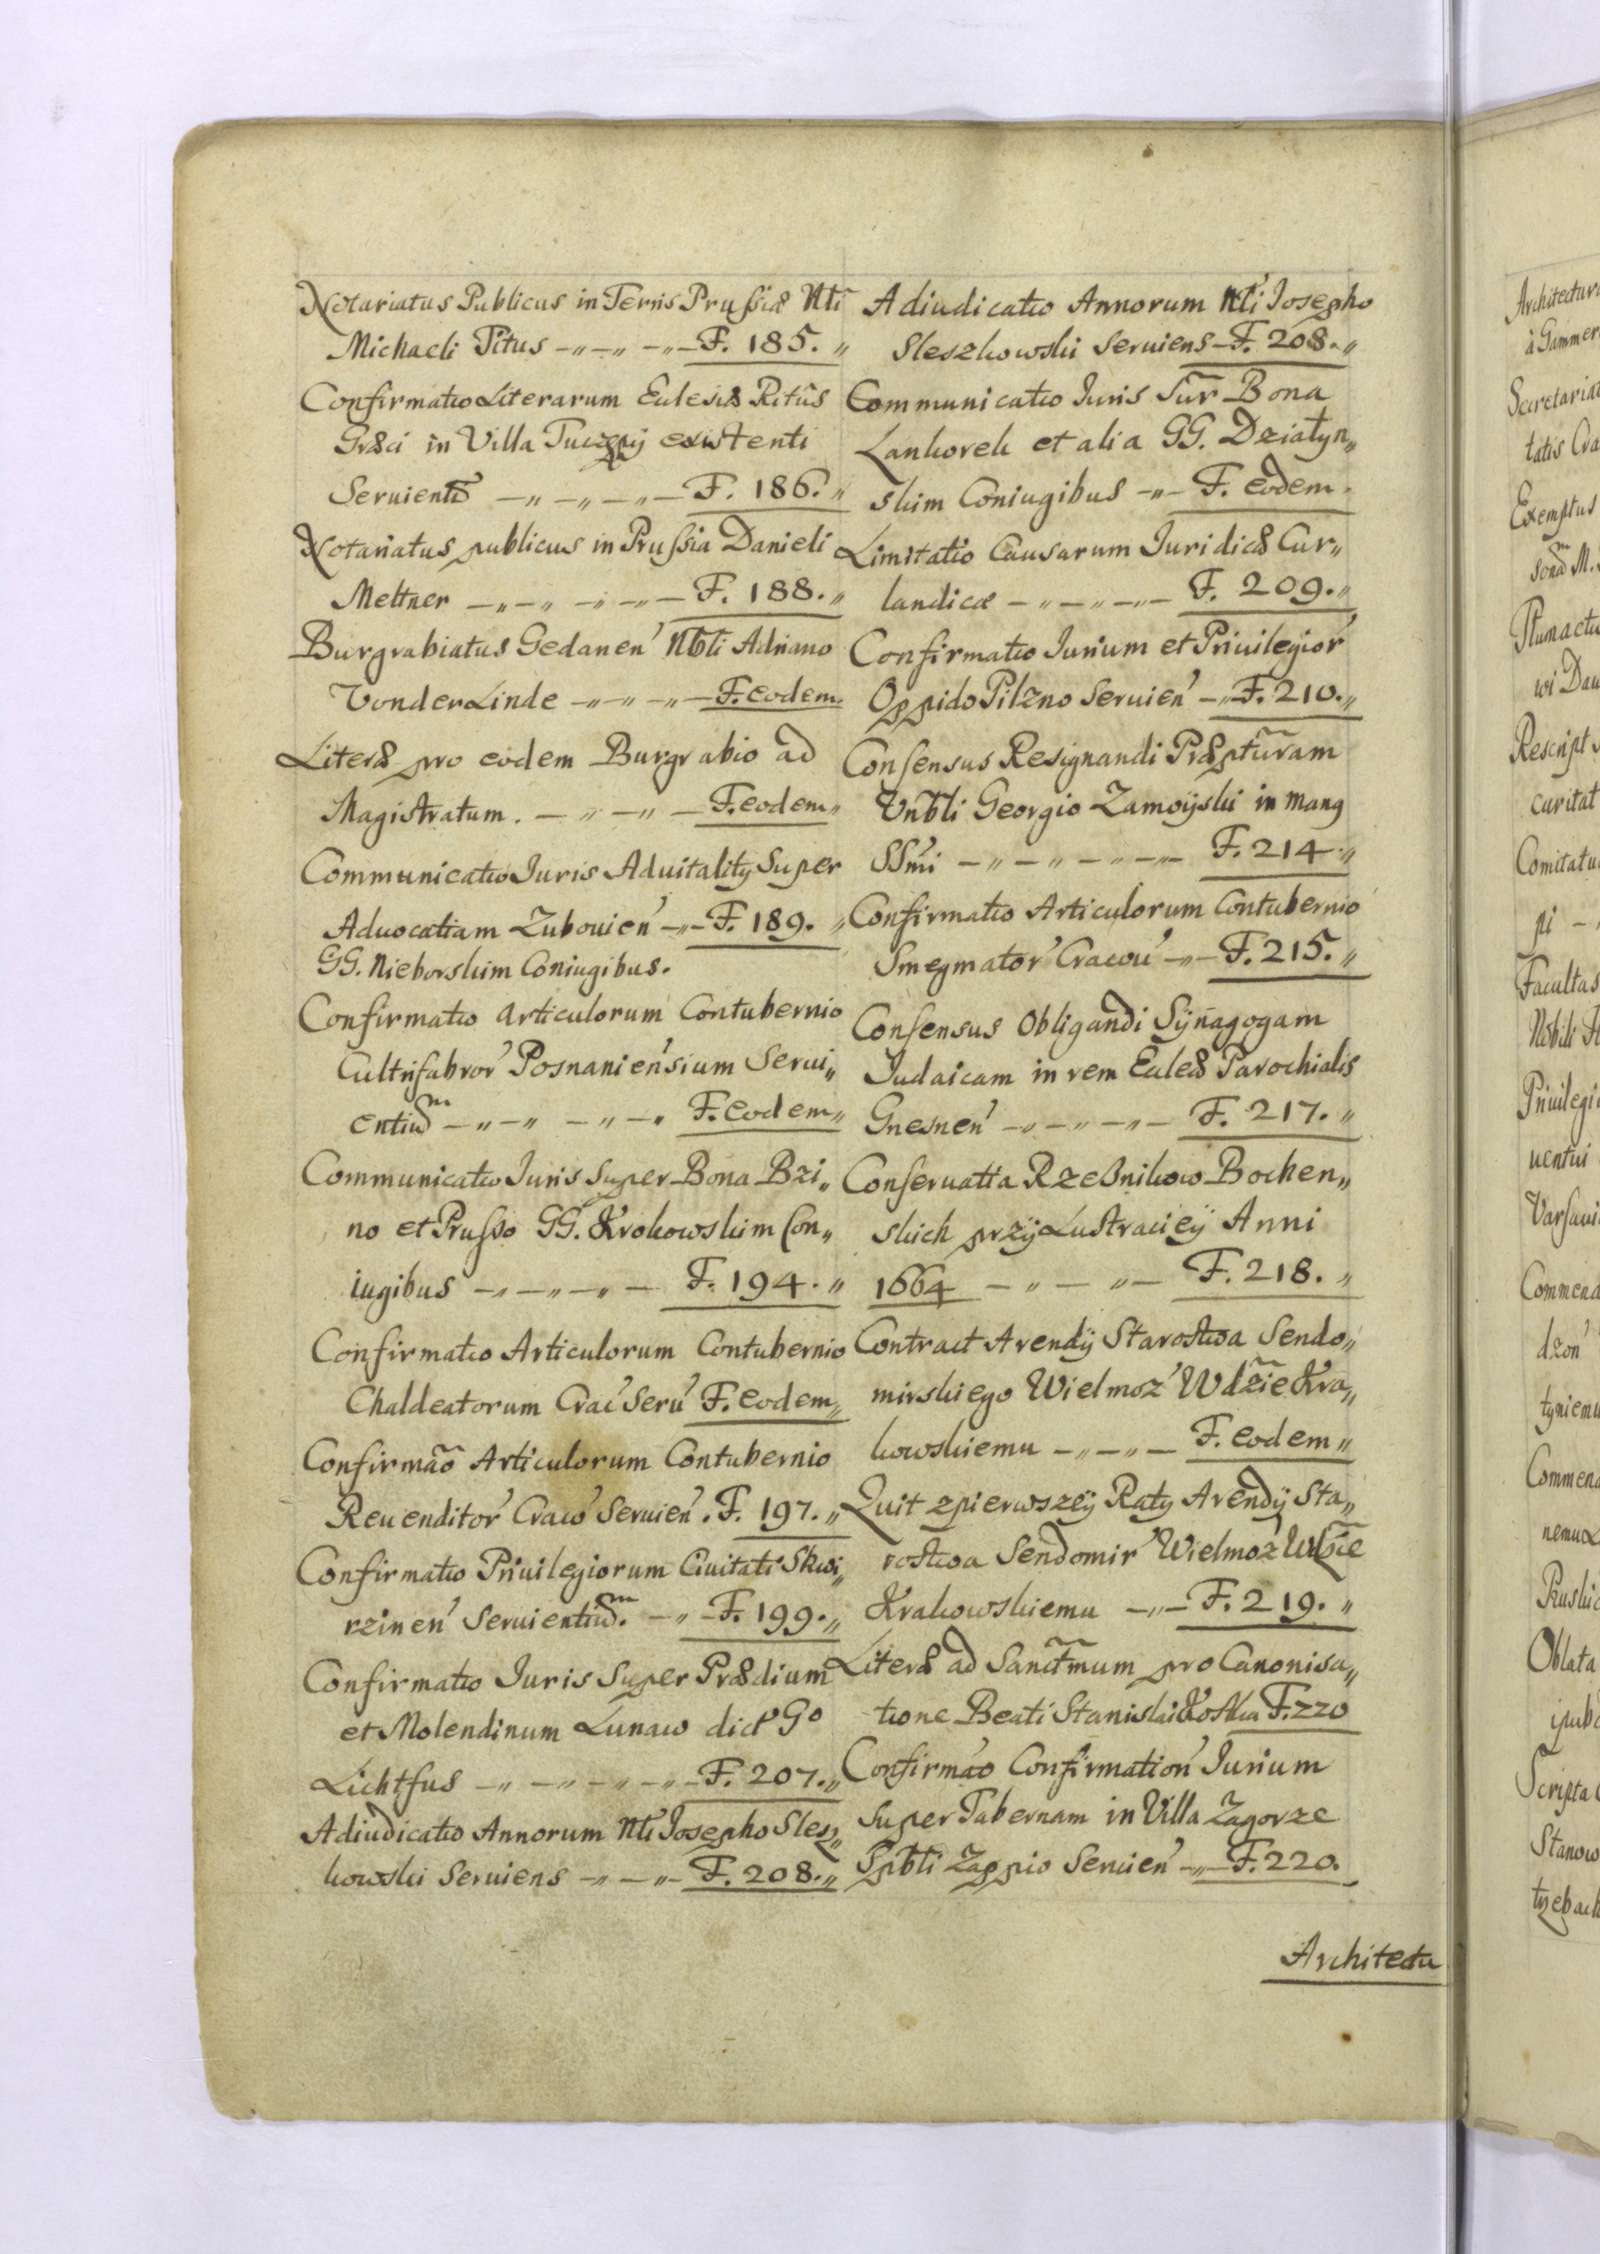 Notariatus Publicus in Terris Prussiæ Nti
Michaeli Pitus F. 185.
Confirmatio Literarum Eclesiæ Ritûs
Græci in Villa Tuczępÿ existenti
Servientiũ F. 186.
Notariatus publicus in Prussia Danieli
Meltner F. 188.
Burgrabiatus Gedanen' Nbli Adriano
Vonder Linde F. eodem.
Literæ pro eodem Burgrabio ad
Magistratum. F. eodem
Communicatio Juris Aduitalitÿ Super
Aduocatiam Zubouien' F. 189.
GG. Nieborskim Coniugibus.
Confirmatio articulorum Contubernio
Cultrifabror' Posnaniensium Servi„
entium F. eodem
Communicatio Juris Super Bona Bzi„
no et Prusso GG. Krokowskim Con„
iugibus F. 194.
Confirmatio Articulorum Contubernio
Chaldeatorum Crac' Seru' F. eodem
Confirmão Articulorum Contubernio
Reuenditor' Cracov' Seruien'. F. 197.
Confirmatio Priuilegiorum Ciuitati Skwi„
rzinen' Seruientium. F. 199.
Confirmatio Juris Super Prædium
et Molendinum Lunaw dict' Go
Lichtfus F. 207.
Adiudicatio Annorum Nti Josepho Slesz„
kowski Seruiens F. 208.
Adiudicatio Annorum Nti Josepho
Sleszkowski Seruiens F. 208.
Communicatio Juris Sur Bona
Lankorek et alia GG. Działyn„
skim Coniugibus F. eodem.
Limitatio Causarum Juridicæ Cur„
landicæ F. 209.
Confirmatio Jurium et Priuilegior'
Oppido Pilzno Seruien' F. 210.
Consensus Resignandi Præpturam
Vnbli Georgio Zamoÿski in mang
SSmi F. 214.
Confirmatio Articulorum Contubernio
Smegmator' Cracou' F. 215.
Consensus Obligandi Sÿnagogam
Judaicam in rem Ecleæ Parochialis
Gnesnen' F. 217.
Conseruatia Rzeßnikow Bochen„
skich przÿ Lustracieÿ Anni
1664 F. 218.
Contract Arendÿ Starostwa Sendo„
mirskiego Wielmoz' Wdzie Kra„
kowskiemu F. eodem
Quit zpierwszeÿ Raty Arendÿ Sta„
rostwa Sendomir' Wielmoz'
Krakowskiemu F. 219.
Literæ ad Sanctmum pro Canonisa„
tione Beati Stanislai Kostka F. 220
Confirmao Confirmation' Jurium
Super Tabernam in Villa Zagorze
Zappio Seruien' F. 220.
Architectu
Architectura
Secretaria
Exemptus
wi Dau
Rescript
Comitatu
pi
Facultas
Nobili
Priuilegi
uentui
Varsaui
Commend
dzon'
tyniemu
Commen
nemu
Oblata
Scripta
Stanow